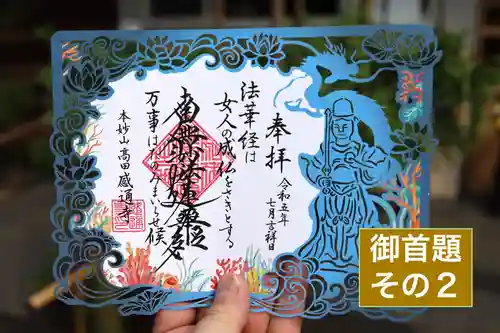 奉拝
令和五年
七月吉祥日
法華経は
女人の成仏をさきとする
南無妙法蓮華経
万事は
らせ候
本妙山 高田感通寺
御首題
その2